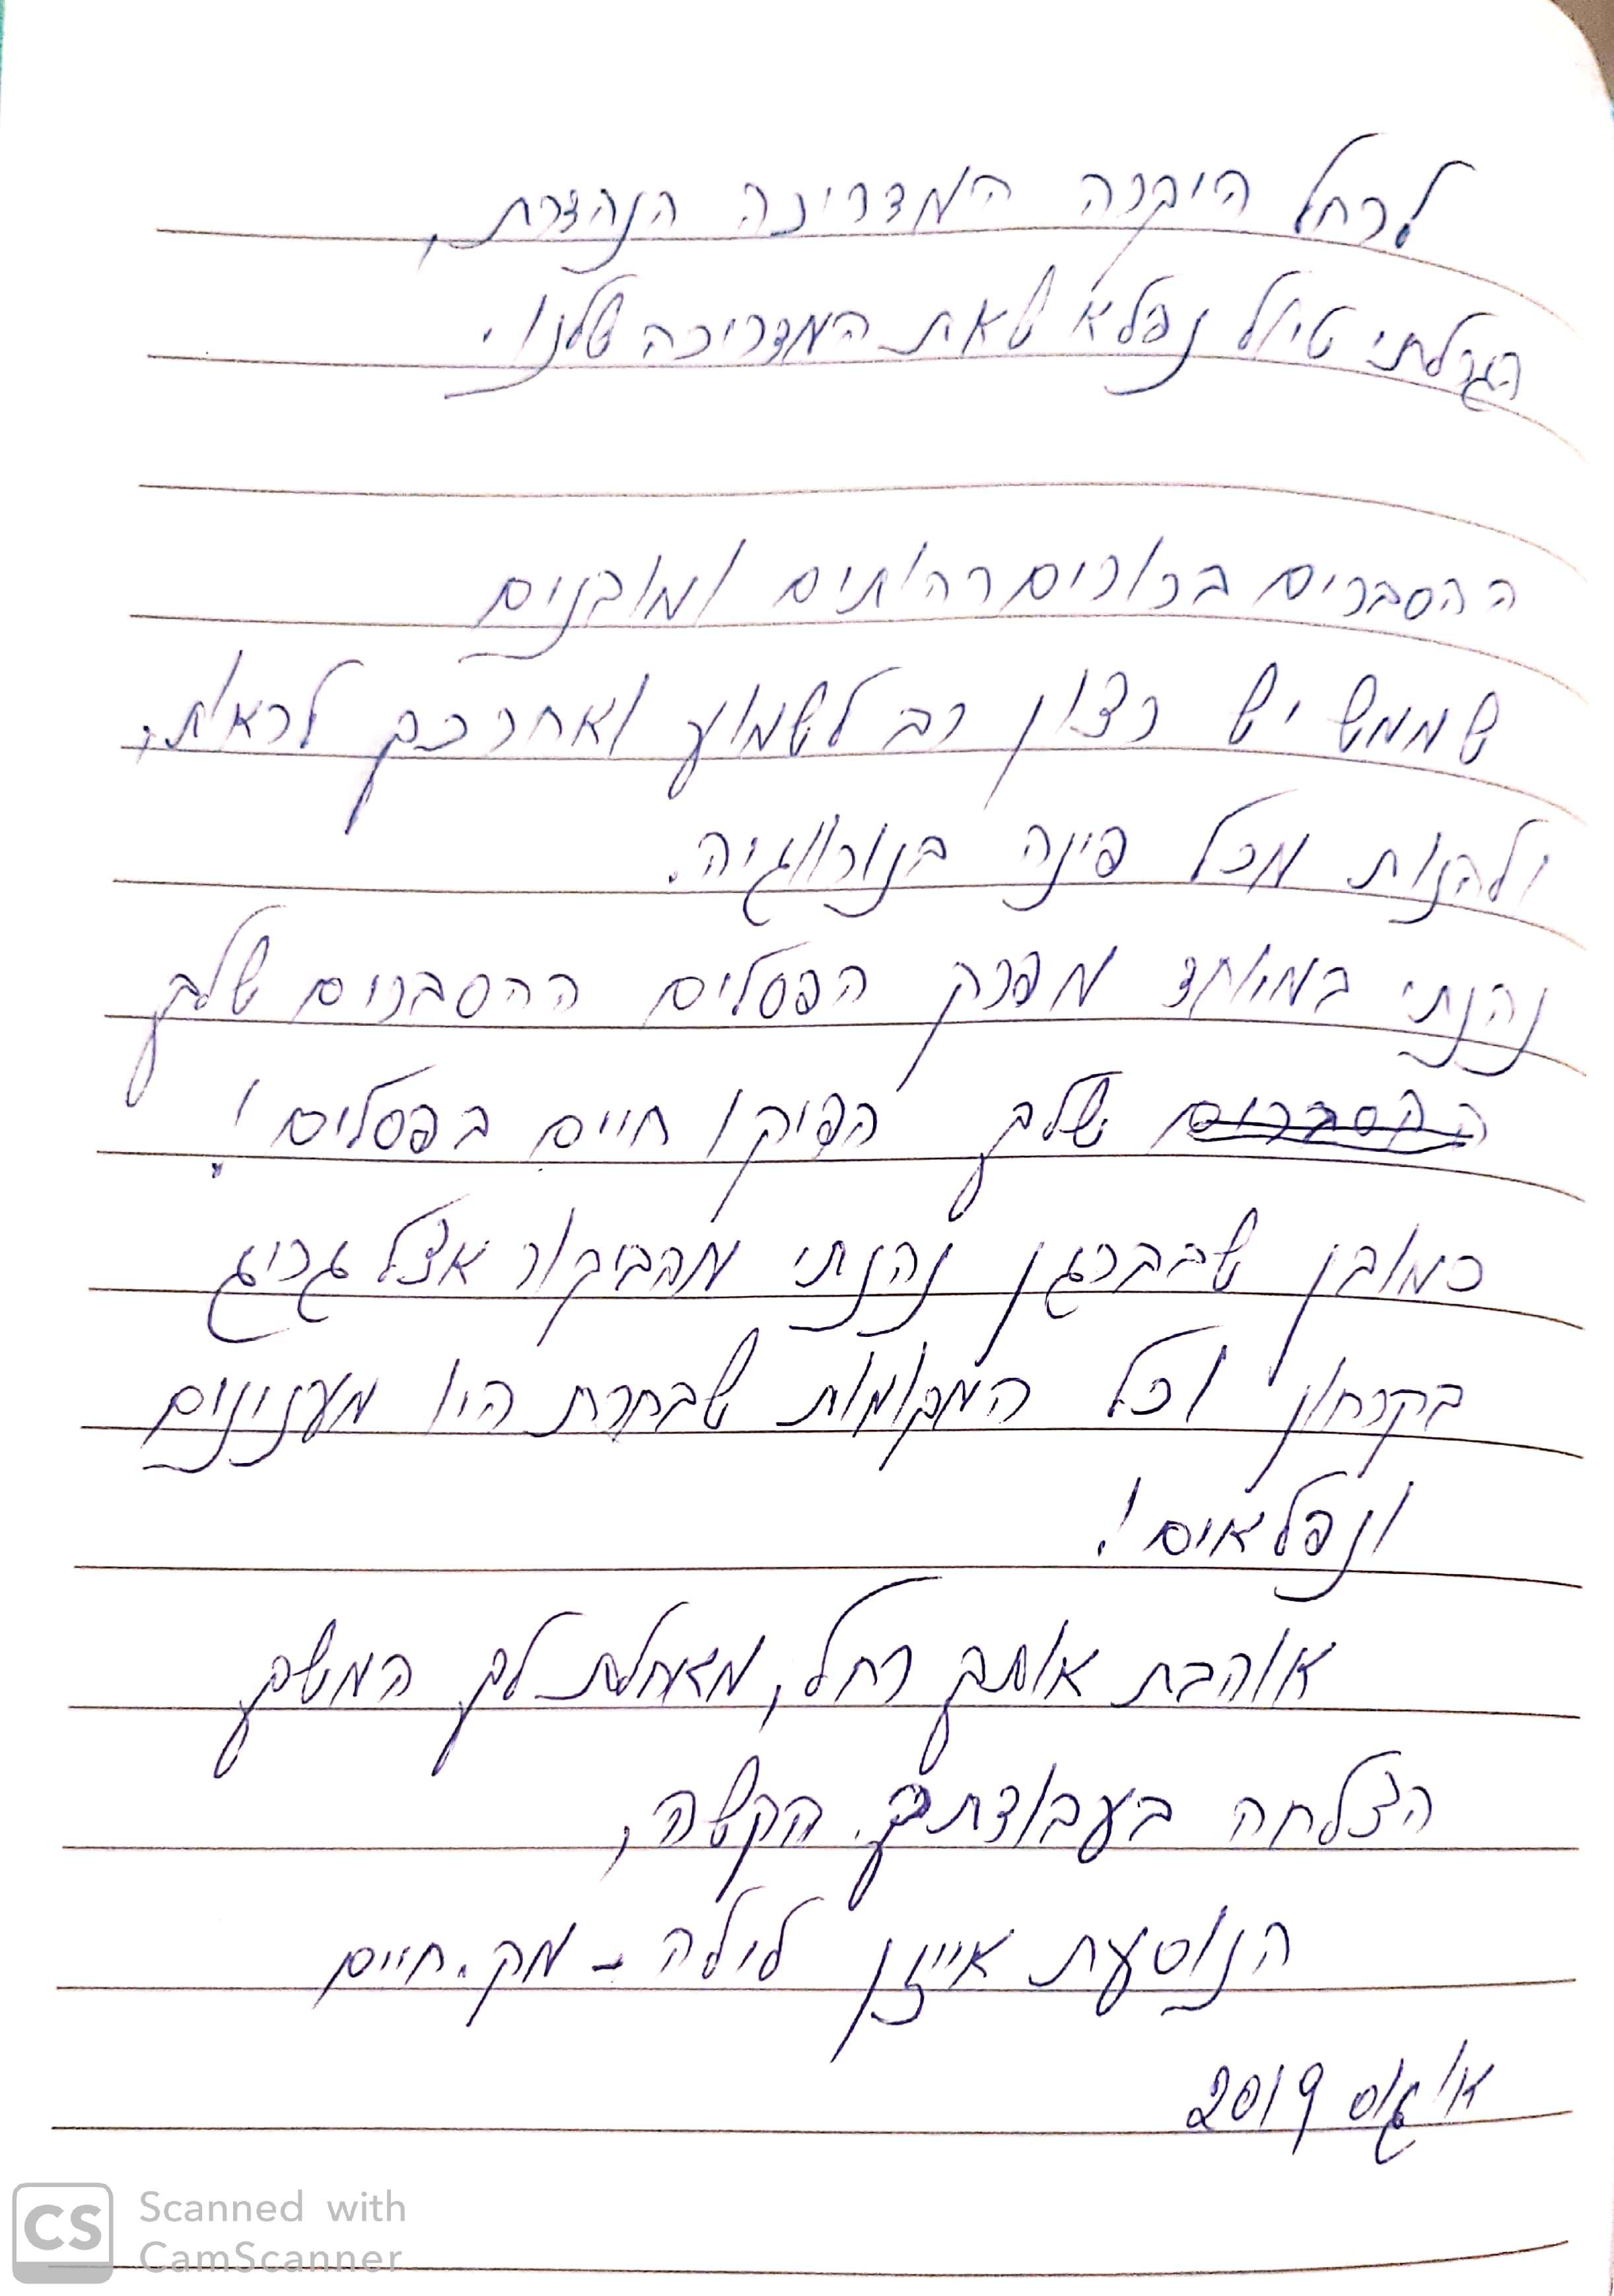 לרחל היקרה המדריכה הנהדרת,
הגרלתי טיול נפלא שאת המדריכה שלנו.
ההסברים ברורים רהוטים ומובנים
שממש יש רצון רב לשמוע ואחר כך לראות,
ולהנות מכל פינה בנורווגיה.
נהנתי במיוחד מפרק הפסלים ההסברים שלך
ההסברים שלך הפיקו חיים בפסלים!
כמובן שבברגן נהנתי מהביקור אצל גריג
בקרחון וכל המקומות שבחרת היו מענינים
ונפלאים!
אוהבת אותך רחל, מאחלת לך המשך
הצלחה בעבודתך הקשה,
הנוסעת אייזן לילה - מק. חיים
אוגוס 2019
CS Scanned with
CamScanner